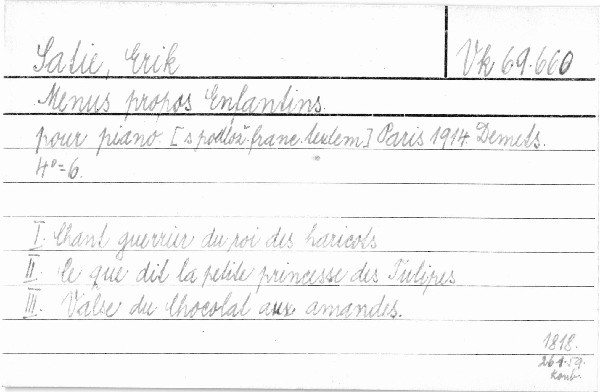 Satie, Erik
Vk 69.660
Menus propos Enfantins.
pour piano. [s podlož. franc. textem] Paris 1914. Demets.
4°=6.
I. Chant guerrier du roi des haricots
II. Ce que dit la petite princesse des Tulipes
III. Valse du Chocolat aux amandes.
1818.